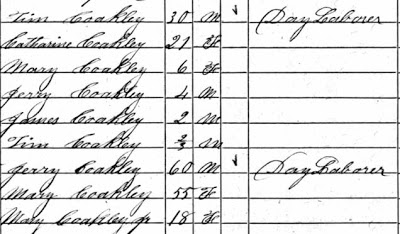 Tim Coakley 30 M ✓ Day Laborer
Catharine Coakley 21 F
Mary Coakley 6 F
Jerry Coakley 4 M
James Coakley 2 M
Tim Coakley M
Jerry Coakley 60 M ✓ Day Laborer
Mary Coakley 55 F
Mary Coakley jr 18 F